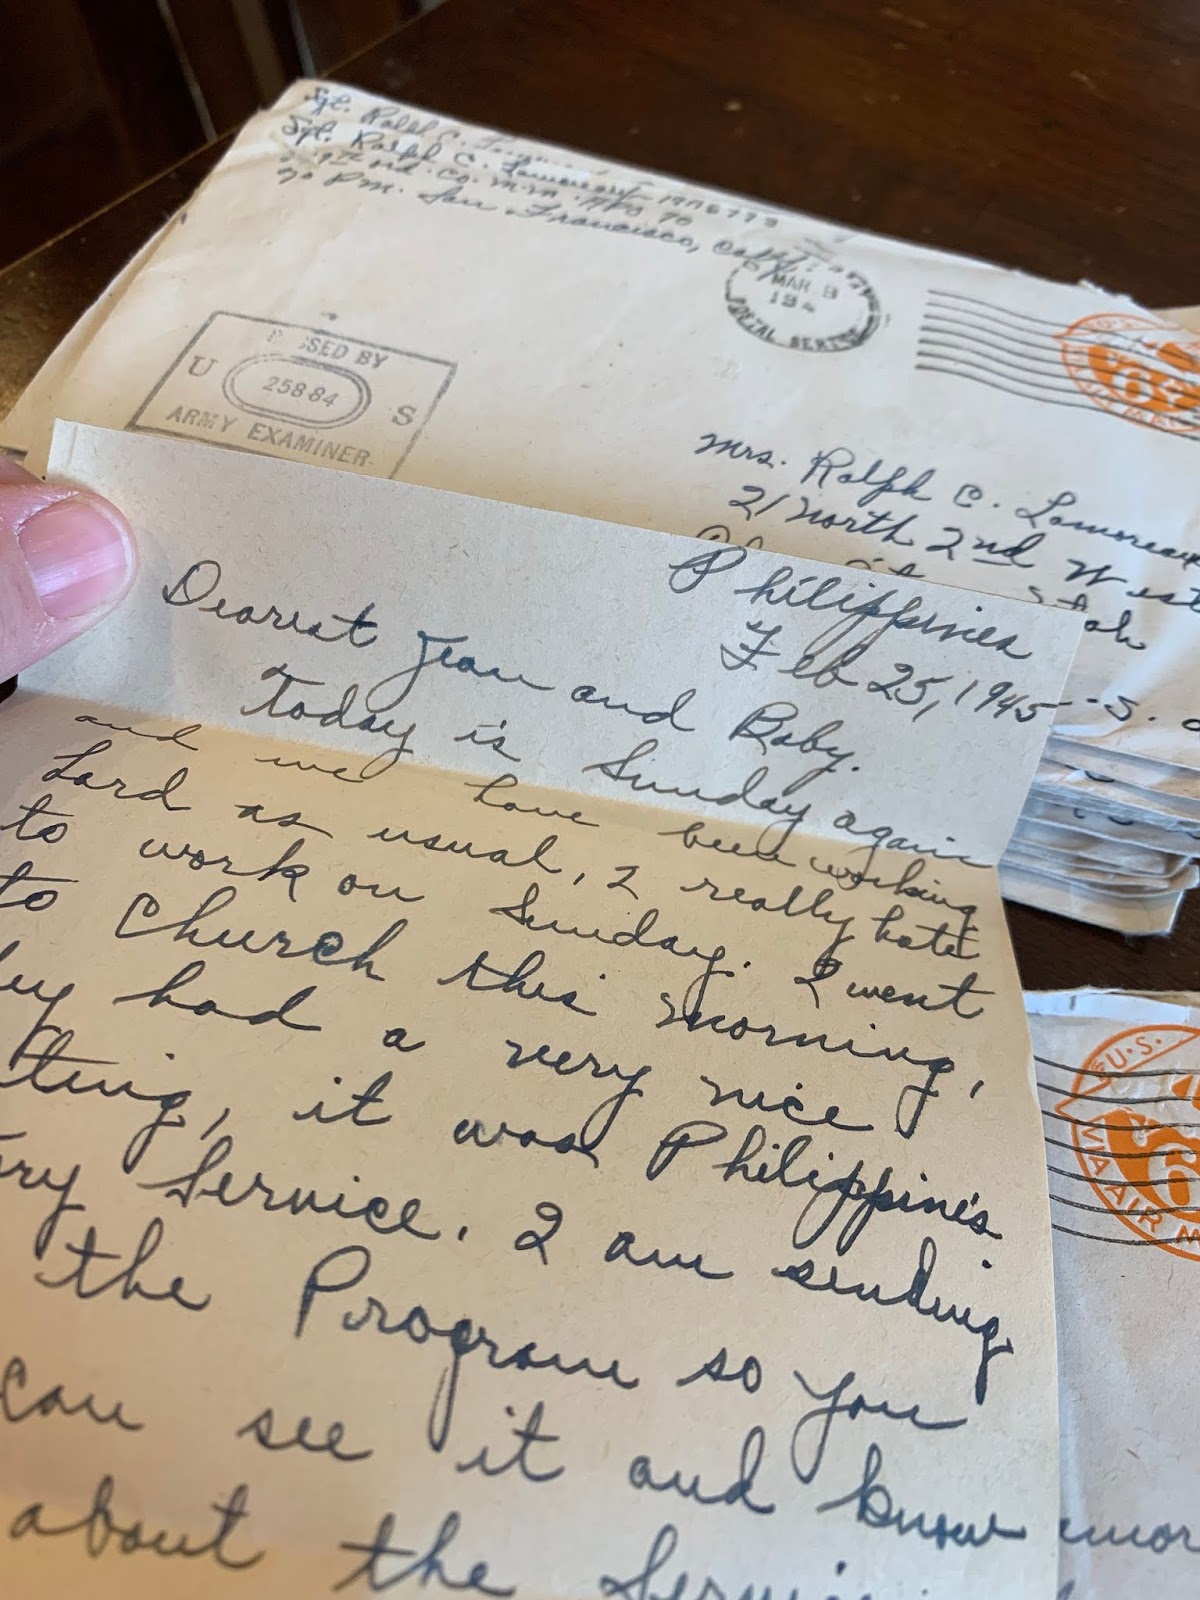 Sgt. Ralph C.
Sgt. Ralph C. Lamoreaux
Ord. Co. M.M. APO 70
% P.M. San Francisco, Calif.
MAR 8
194
POSTAL SERVICE
PASSED BY
U 25884 S
ARMY EXAMINER
U.S.
6
VIA AIR MAIL
Mrs. Ralph C. Lamoreaux
21 North 2nd West
Utah
U.S.
Philippines
Feb 25, 1945
Dearest Jean and Baby.
Today is Sunday again
and we have been working
hard as usual, I really hate
to work on Sunday. I went
to Church this morning,
had a very nice
it was Philippine's
Service. I am sending
the Program so you
can see it and know
about the
U.S.
6
VIA AIR M